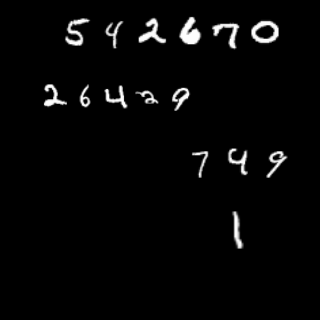 542670
26429
749
1